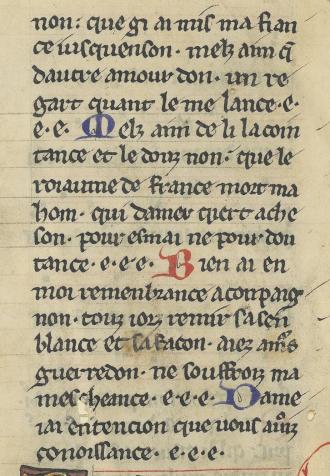 non· que gi ai mis ma fian
ce iusquenson· melz aim q̃
dautre amour don· un re
gart quant le me lance· e·
e· e· Melz aim de li la coin
tance et le douz non· que le
roiaume de france mort ma
hom· qui damer quert ache
son· pour esmai ne pour dou
tance· e· e· e· Bien ai en
moi remenbrance a conpaig
non· touz iorz remir sa sen
blance et sa facon· aiez
guerredon· ne souffroiz ma
mescheance· e· e· e· Dame
iai entencion que vous
conoissance· e· e· e·